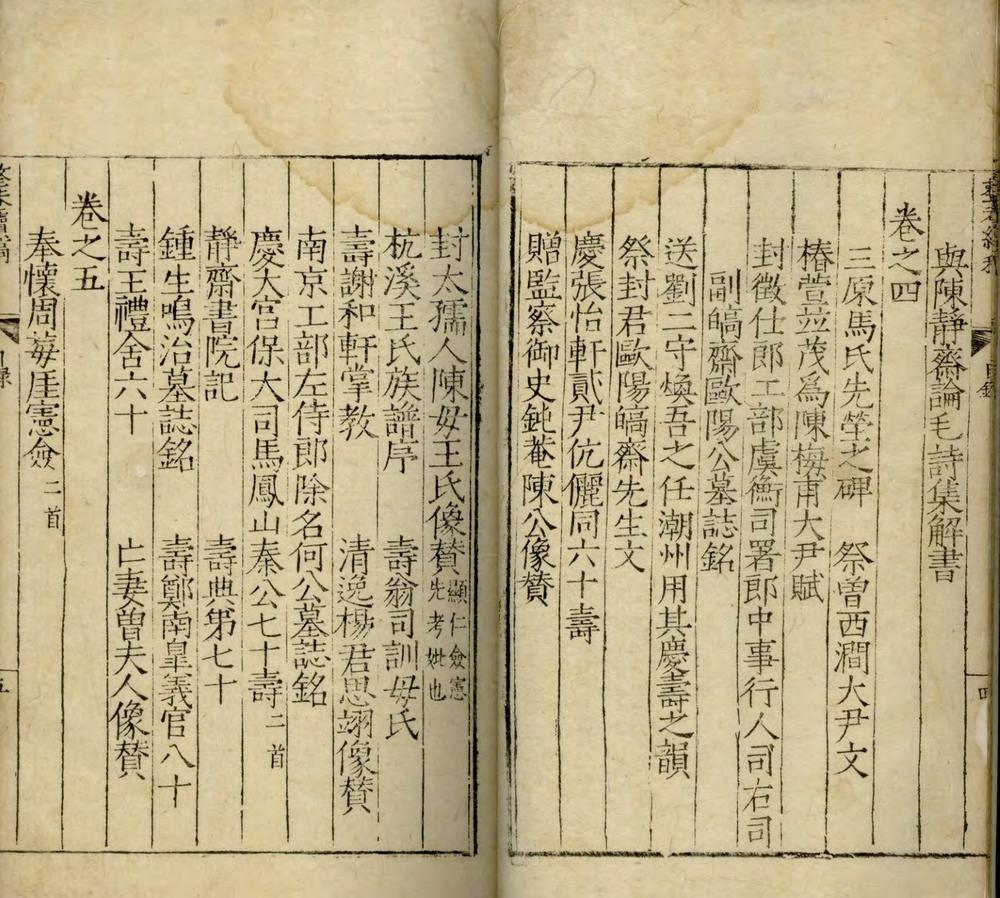 與陳靜齋論毛詩集解書
卷之四
三原馬氏先塋之碑 祭曽西澗大尹文
椿萱並茂爲陳梅南大尹賦
封徵仕郎工部虞衡司署郎中事行人司右司
副皜齋歐陽公墓誌銘
送劉二守煥吾之任潮州用其慶壽之韻
祭封君歐陽皜齋先生文
慶張怡軒貳尹伉儷同六十壽
贈監察御史鈍菴陳公像賛
封太孺人陳母王氏像賛 顯仁僉憲先考妣也
杭溪王氏族譜序 壽翁司訓母氏
壽謝和軒掌教 清逸楊君思翊像賛
南京工部左侍郎除名何公墓誌銘
慶大宮保大司馬鳳山秦公七十壽 二首
靜齋書院記 壽典第七十
鍾生鳴治墓誌銘 壽鄭南皐義官八十
壽王禮舍六十 亡妻曽夫人像賛
卷之五
奉懷周苺厓憲僉 二首
目録
五